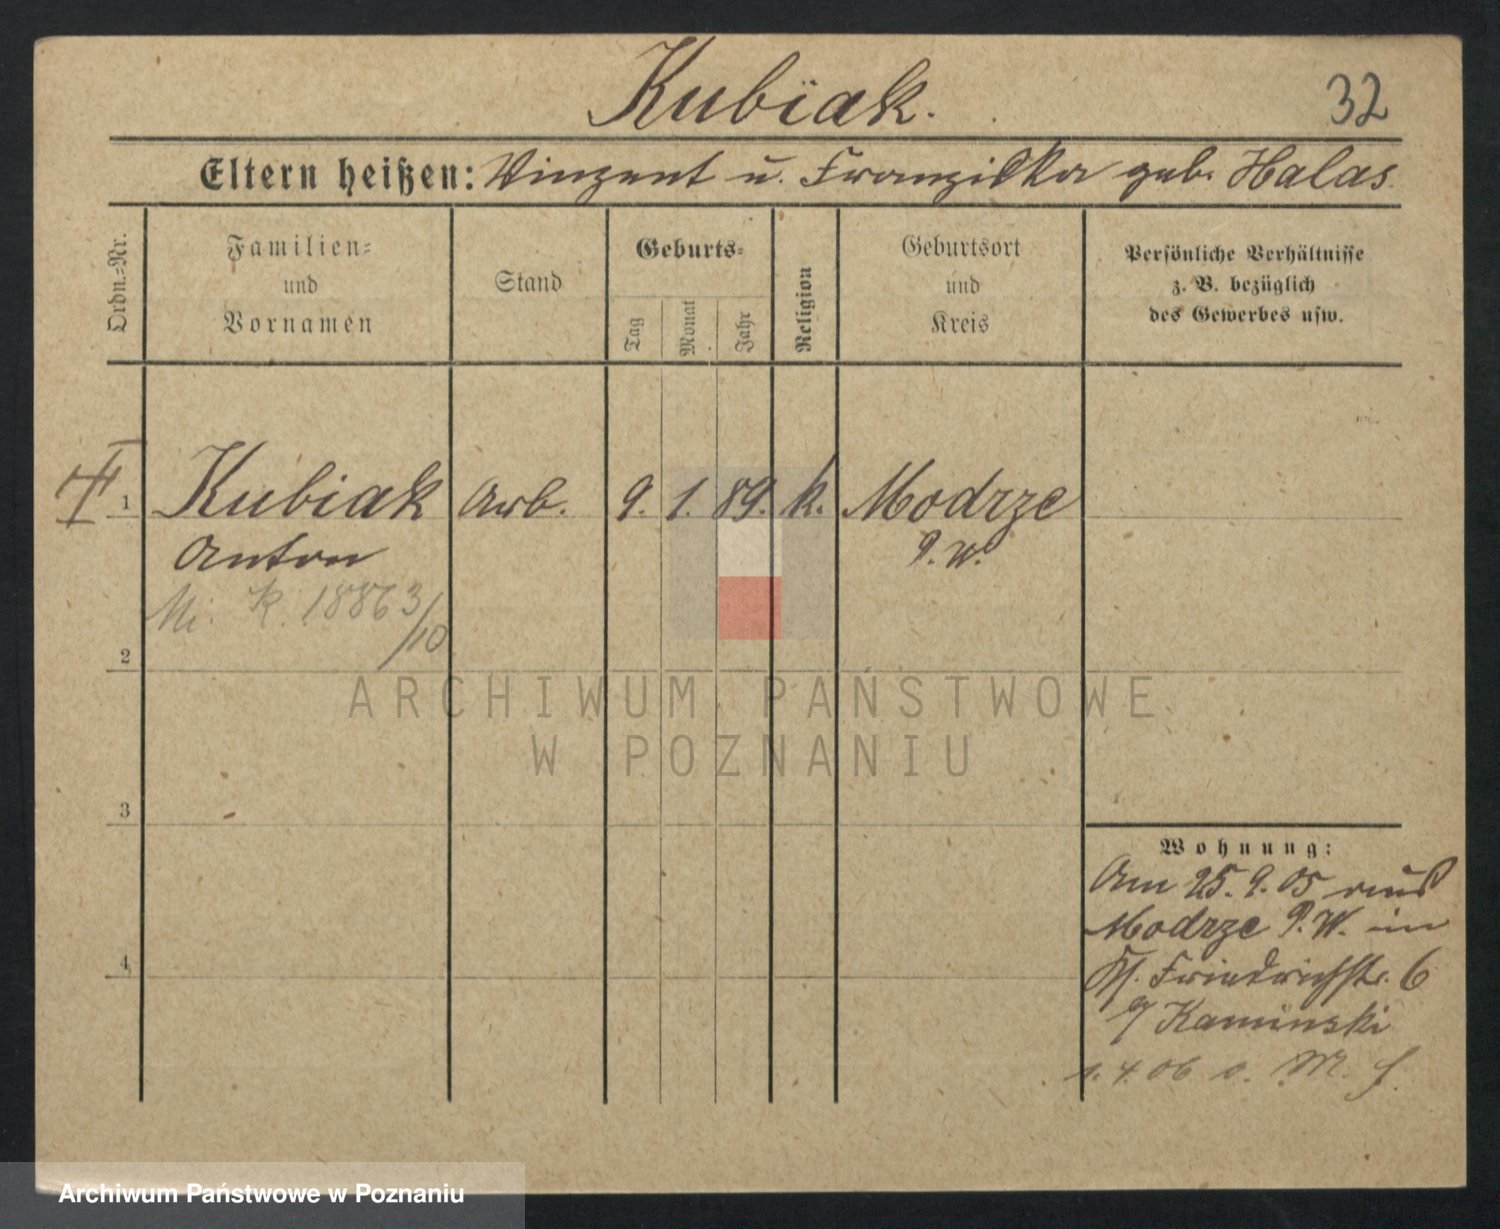 Kubiak.
32
Eltern heißen: Vinzent u. Franziska geb. Halas.
Ordn.=Nr.
Familien=
und
Vornamen
Stand
Geburts=
Tag
Monat
Jahr
Religion
Geburtsort
und
Kreis
Persönliche Verhältnisse
z. B. bezüglich
des Gewerbes usw.
1 Kubiak Arb. 9. 1. 89. k. Modrze
Anton P. W.
Mi. K. 1886 3/10
2
ARCHIWUM PAŃSTWOWE
W POZNANIU
3
Wohnung:
Am 25.9.05 aus
Modrze P. W. in
Friedrichstr. 6
b/ Kaminski
4
1.4.06 o. M. f.
Archiwum Państwowe w Poznaniu